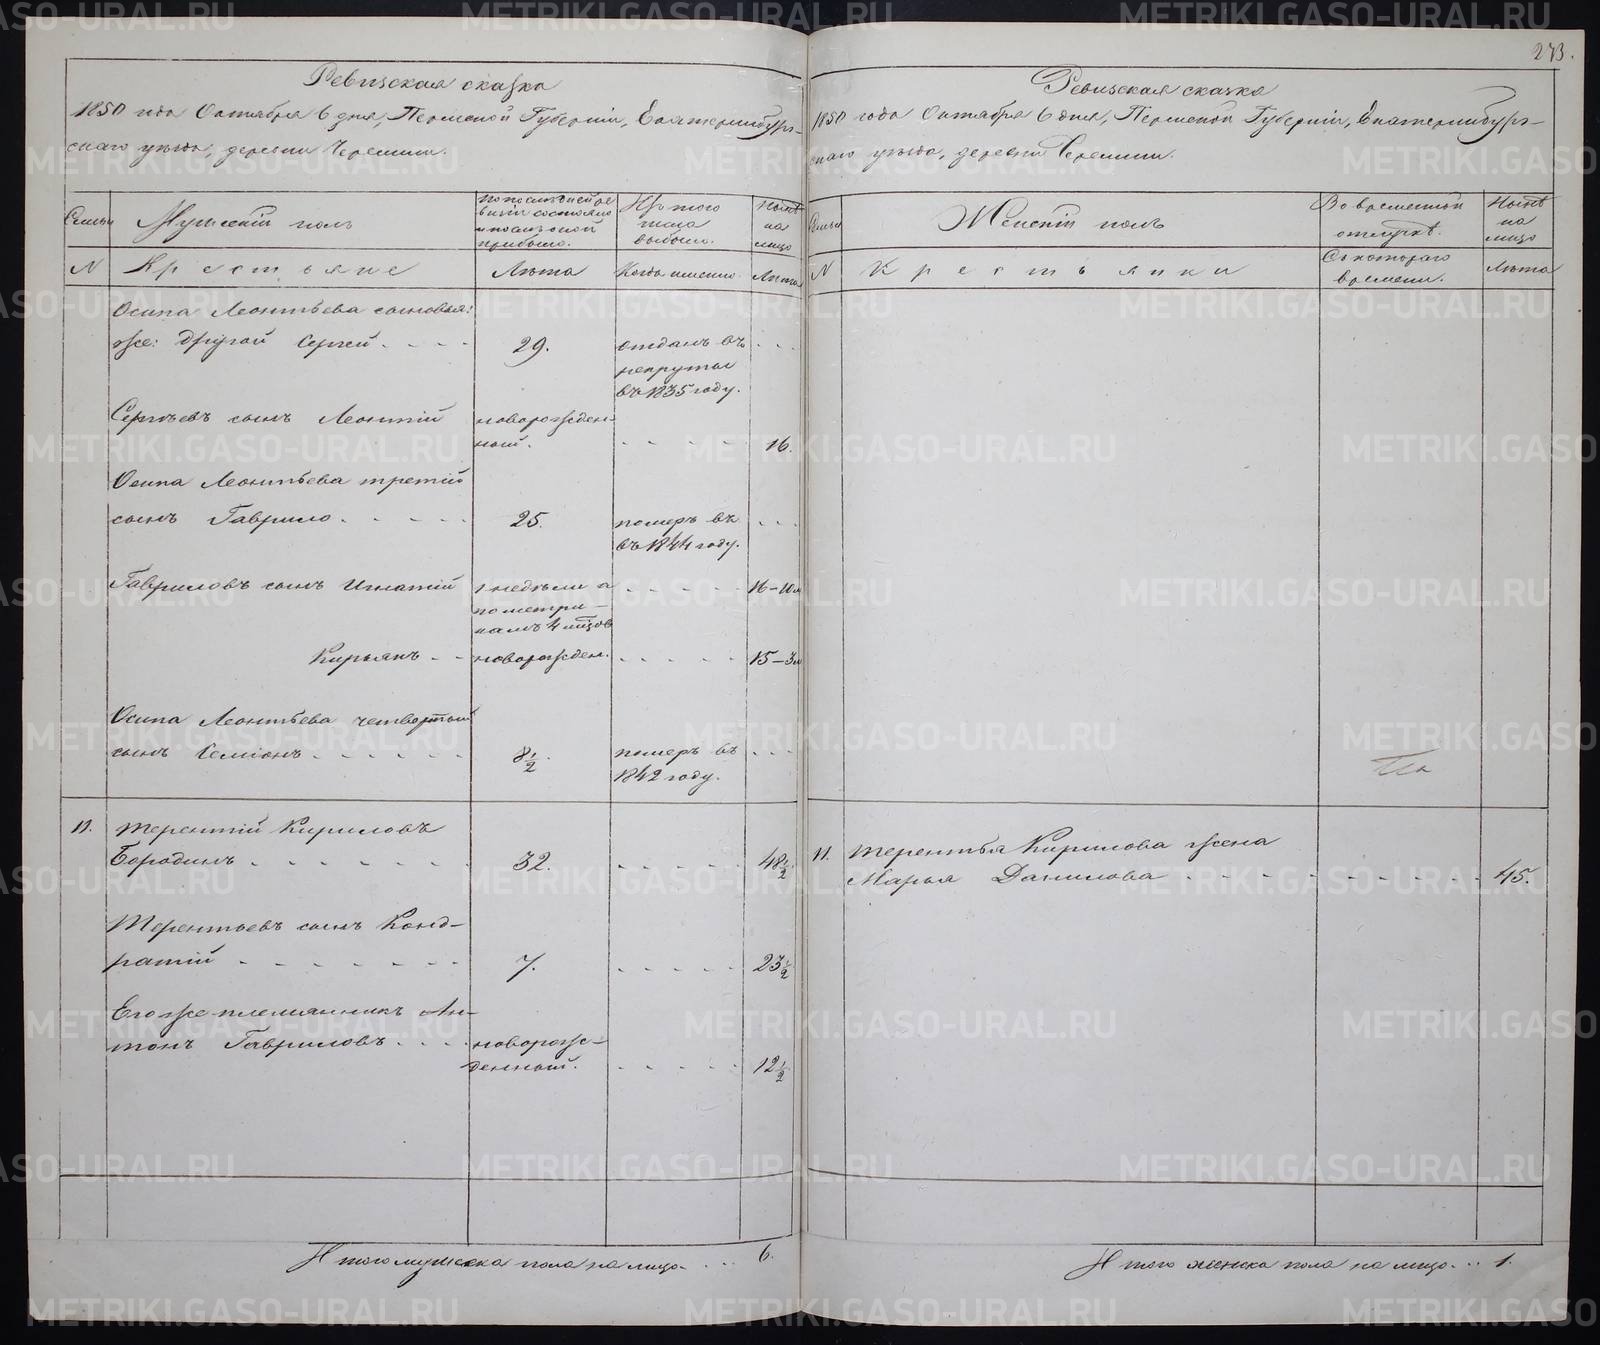 273.
Ревизская сказка
1850 года Октября 6 дня, Пермской Губерніи, Екатеринбург-
скаго уѣзда, деревни Черемши.
Семьи
Мужескій полъ
По последней ре
визіи состояло
и после оной
прибыло.
Изъ того
числа
выбыло.
Нынѣ
на
лицо
N
Крестьяне
Лѣта
Когда именно.
Лѣта
Осипа Леонтьева сыновья:
же: другой Сергей - - - -
29.
отданъ въ
рекруты
въ 1835 году.
- - -
Сергѣевъ сынъ Леонтій
новорожден-
ный.
- - - - -
16.
Осипа Леонтьева третій
сынъ Гаврило - - - - -
25.
померъ въ
въ 1844 году.
- - -
Гавриловъ сынъ Игнатій
недѣли а
по метри-
камъ 4 мѣсов
- - - - -
16-10м
Кирьянъ - -
новорожден.
- - - - -
15-3м
Осипа Леонтьева четвертый
сынъ Семіонъ - - - - - -
8½.
померъ въ
1842 году.
- - -
11.
Терентій Кириловъ
Бородинъ - - - - - - -
32.
- - - - -
48½
Терентьевъ сынъ Конд-
ратій - - - - - - -
7.
- - - - -
23½
Его же племянникъ Ан-
тонъ Гавриловъ - - - -
новорож-
денный.
- - - - -
12½
Итого мужеска пола на лицо - - - 6.
Ревизская сказка
1850 года Октября 6 дня, Пермской Губерніи, Екатеринбург-
скаго уѣзда, деревни Черемши.
Семьи
Женскій полъ
Во временной
отлучкѣ.
Нынѣ
на
лицо
N
Крестьянки
Съ котораго
времени.
Лѣта
11.
Терентья Кирилова жена
Марья Данилова - - - - - - - - - - -
45.
Итого женска пола на лицо - - - 1.
METRIKI.GASO-URAL.RU